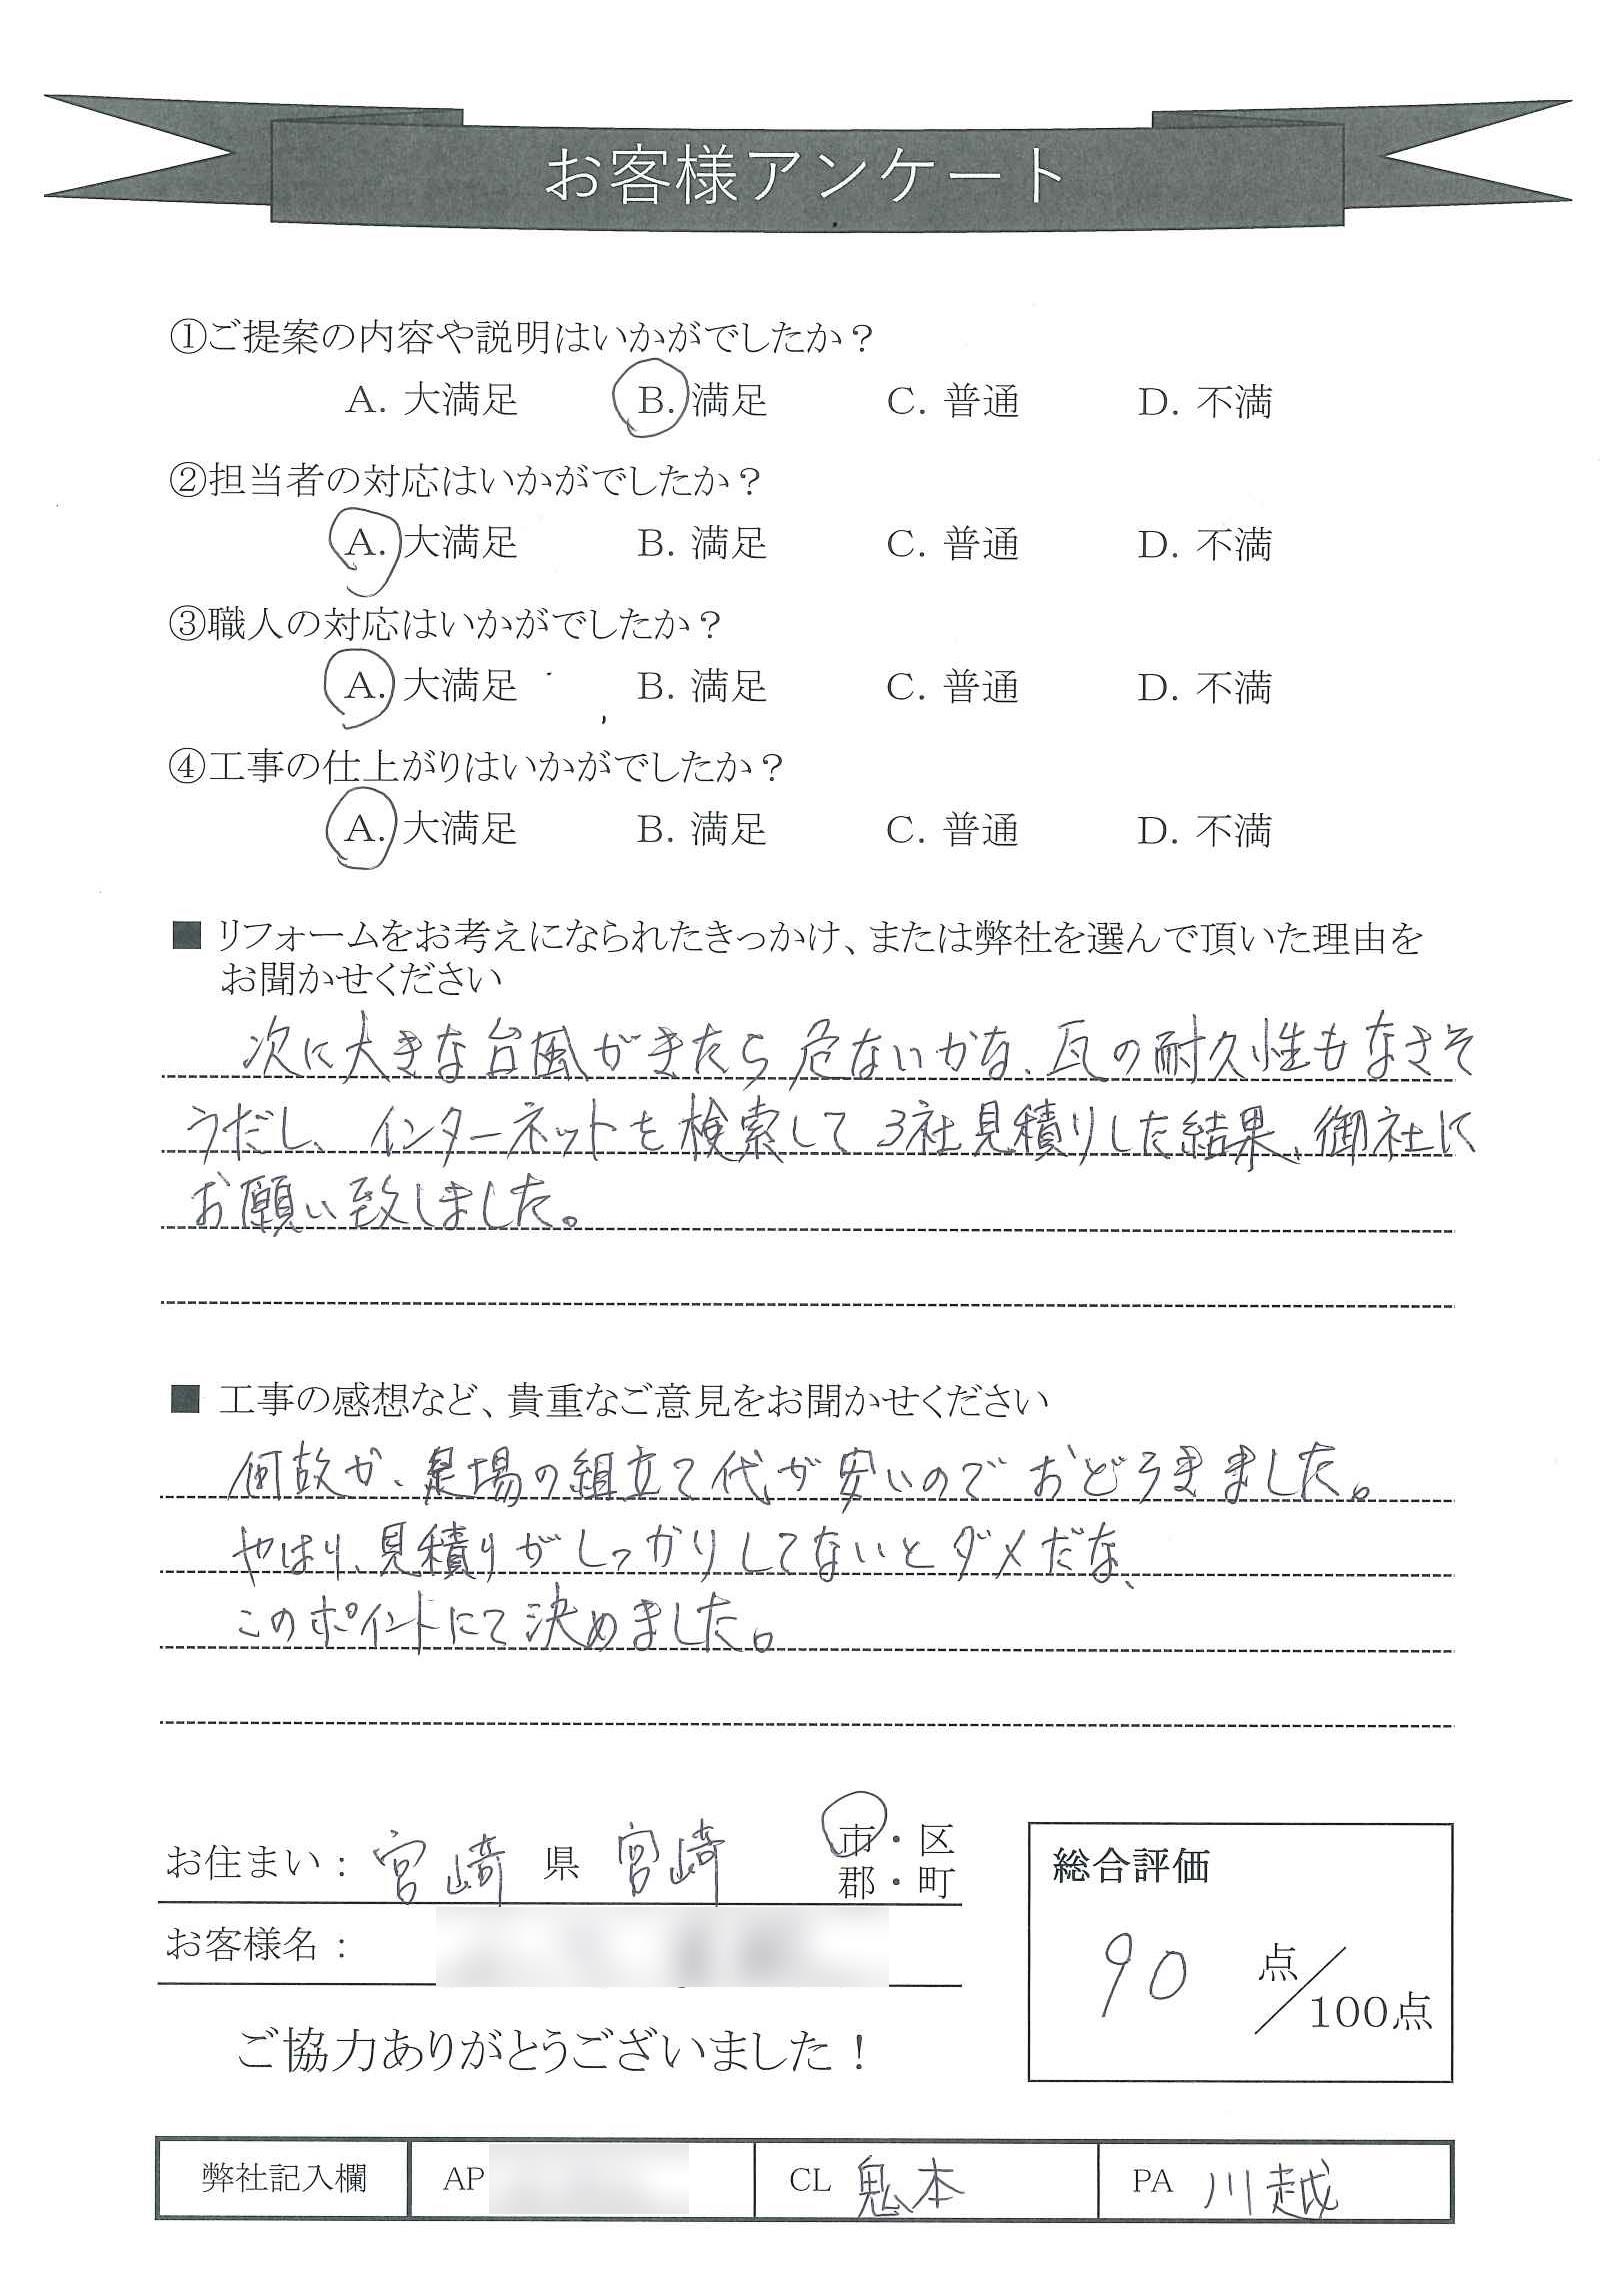 お客様アンケート
①ご提案の内容や説明はいかがでしたか？
A. 大満足 B. 満足 C. 普通 D. 不満
②担当者の対応はいかがでしたか？
A. 大満足 B. 満足 C. 普通 D. 不満
③職人の対応はいかがでしたか？
A. 大満足 B. 満足 C. 普通 D. 不満
④工事の仕上がりはいかがでしたか？
A. 大満足 B. 満足 C. 普通 D. 不満
■ リフォームをお考えになられたきっかけ、または弊社を選んで頂いた理由を
お聞かせください
次に大きな台風がきたら危ないかな、瓦の耐久性もなさそ
うだし、インターネットを検索して3社見積りした結果、御社に
お願い致しました。
■ 工事の感想など、貴重なご意見をお聞かせください
何故か、足場の組立て代が安いのでおどろきました。
やはり、見積りがしっかりしてないとダメだな、
このポイントにて決めました。
お住まい： 宮崎 県 宮崎 市・区
郡・町
お客様名：
総合評価
90 点／100点
ご協力ありがとうございました！
弊社記入欄 AP CL 鬼本 PA 川越